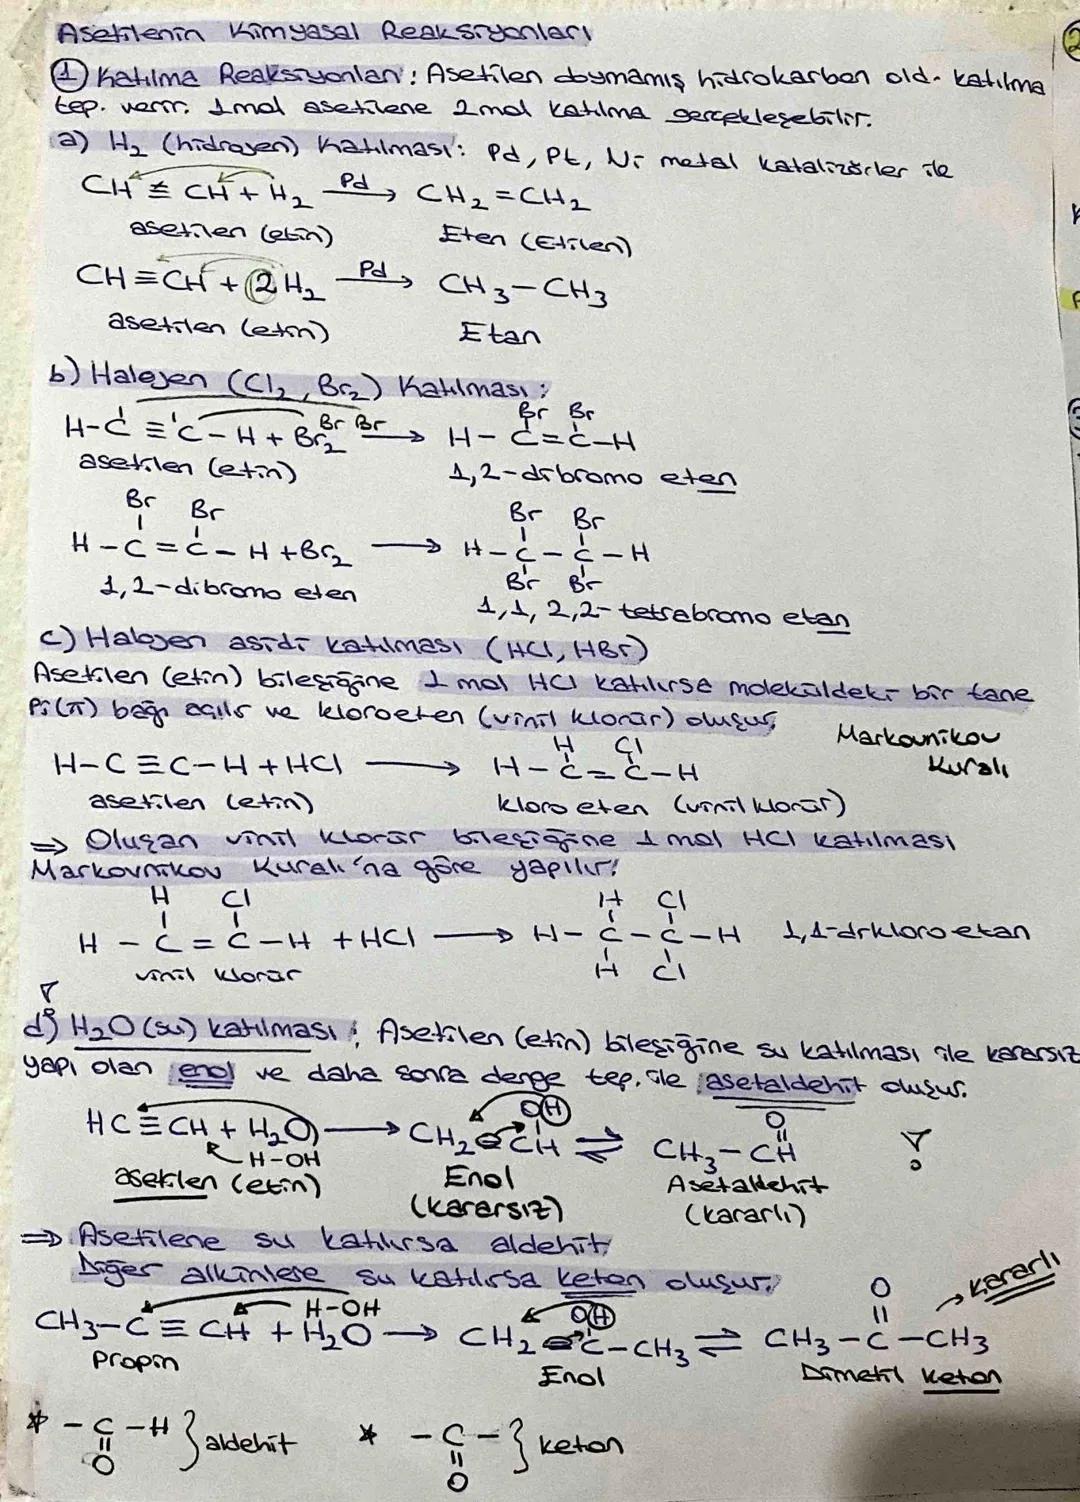 Asetilenin Kimyasal Reaksiyonları
① Katılma Reaksiyonları: Asetilen doymamış hidrokarbon old. katılma
tep. verir. 1 mol asetilene 2 mol katılma gerçekleşebilir.
a) H₂ (hidrojen) Katılması: Pd, Pt, Ni metal katalizörler ile
CH ≡ CH + H₂ —Pd→ CH₂=CH₂
asetilen (etin) Eten (Etilen)
CH≡CH + 2H₂ —Pd→ CH₃-CH₃
asetilen (etin) Etan
b) Halojen (Cl₂, Br₂) Katılması:
Br Br
H-C≡C-H + Br₂ Br Br → H-C=C-H
asetilen (etin) 1,2-dibromo eten
Br Br Br Br
H-C=C-H +Br₂ → H-C-C-H
Br Br
1,2-dibromo eten 1,1,2,2-tetrabromo etan
c) Halojen asidi katılması (HCl, HBr)
Asetilen (etin) bileşiğine 1 mol HCl katılırsa moleküldeki bir tane
Pi(π) bağı açılır ve kloroeten (vinil klorür) oluşur.
Markovnikov
Kuralı
H Cl
H-C≡C-H + HCl → H-C=C-H
asetilen (etin) kloro eten (vinil klorür)
⇒ Oluşan vinil klorür bileşiğine 1 mol HCl katılması
Markovnikov Kuralı'na göre yapılır!
H Cl H Cl
H-C=C-H + HCl → H-C-C-H 1,1-dikloro etan
vinil klorür H Cl
d) H₂O (su) katılması; Asetilen (etin) bileşiğine su katılması ile kararsız
yapı olan enol ve daha sonra denge tep. ile asetaldehit oluşur.
OH O
HC≡CH + H₂O → CH₂=CH ⇌ CH₃-CH
H-OH
asetilen (etin) Enol Asetaldehit
(kararsız) (kararlı)
⇒ Asetilene su katılırsa aldehit,
Diğer alkinlere su katılırsa keton oluşur.
H-OH OH O → kararlı
CH₃-C≡CH + H₂O → CH₂=C-CH₃ ⇌ CH₃-C-CH₃
Propin Enol Dimetil keton
* -C-H } aldehit * -C- } keton
O O